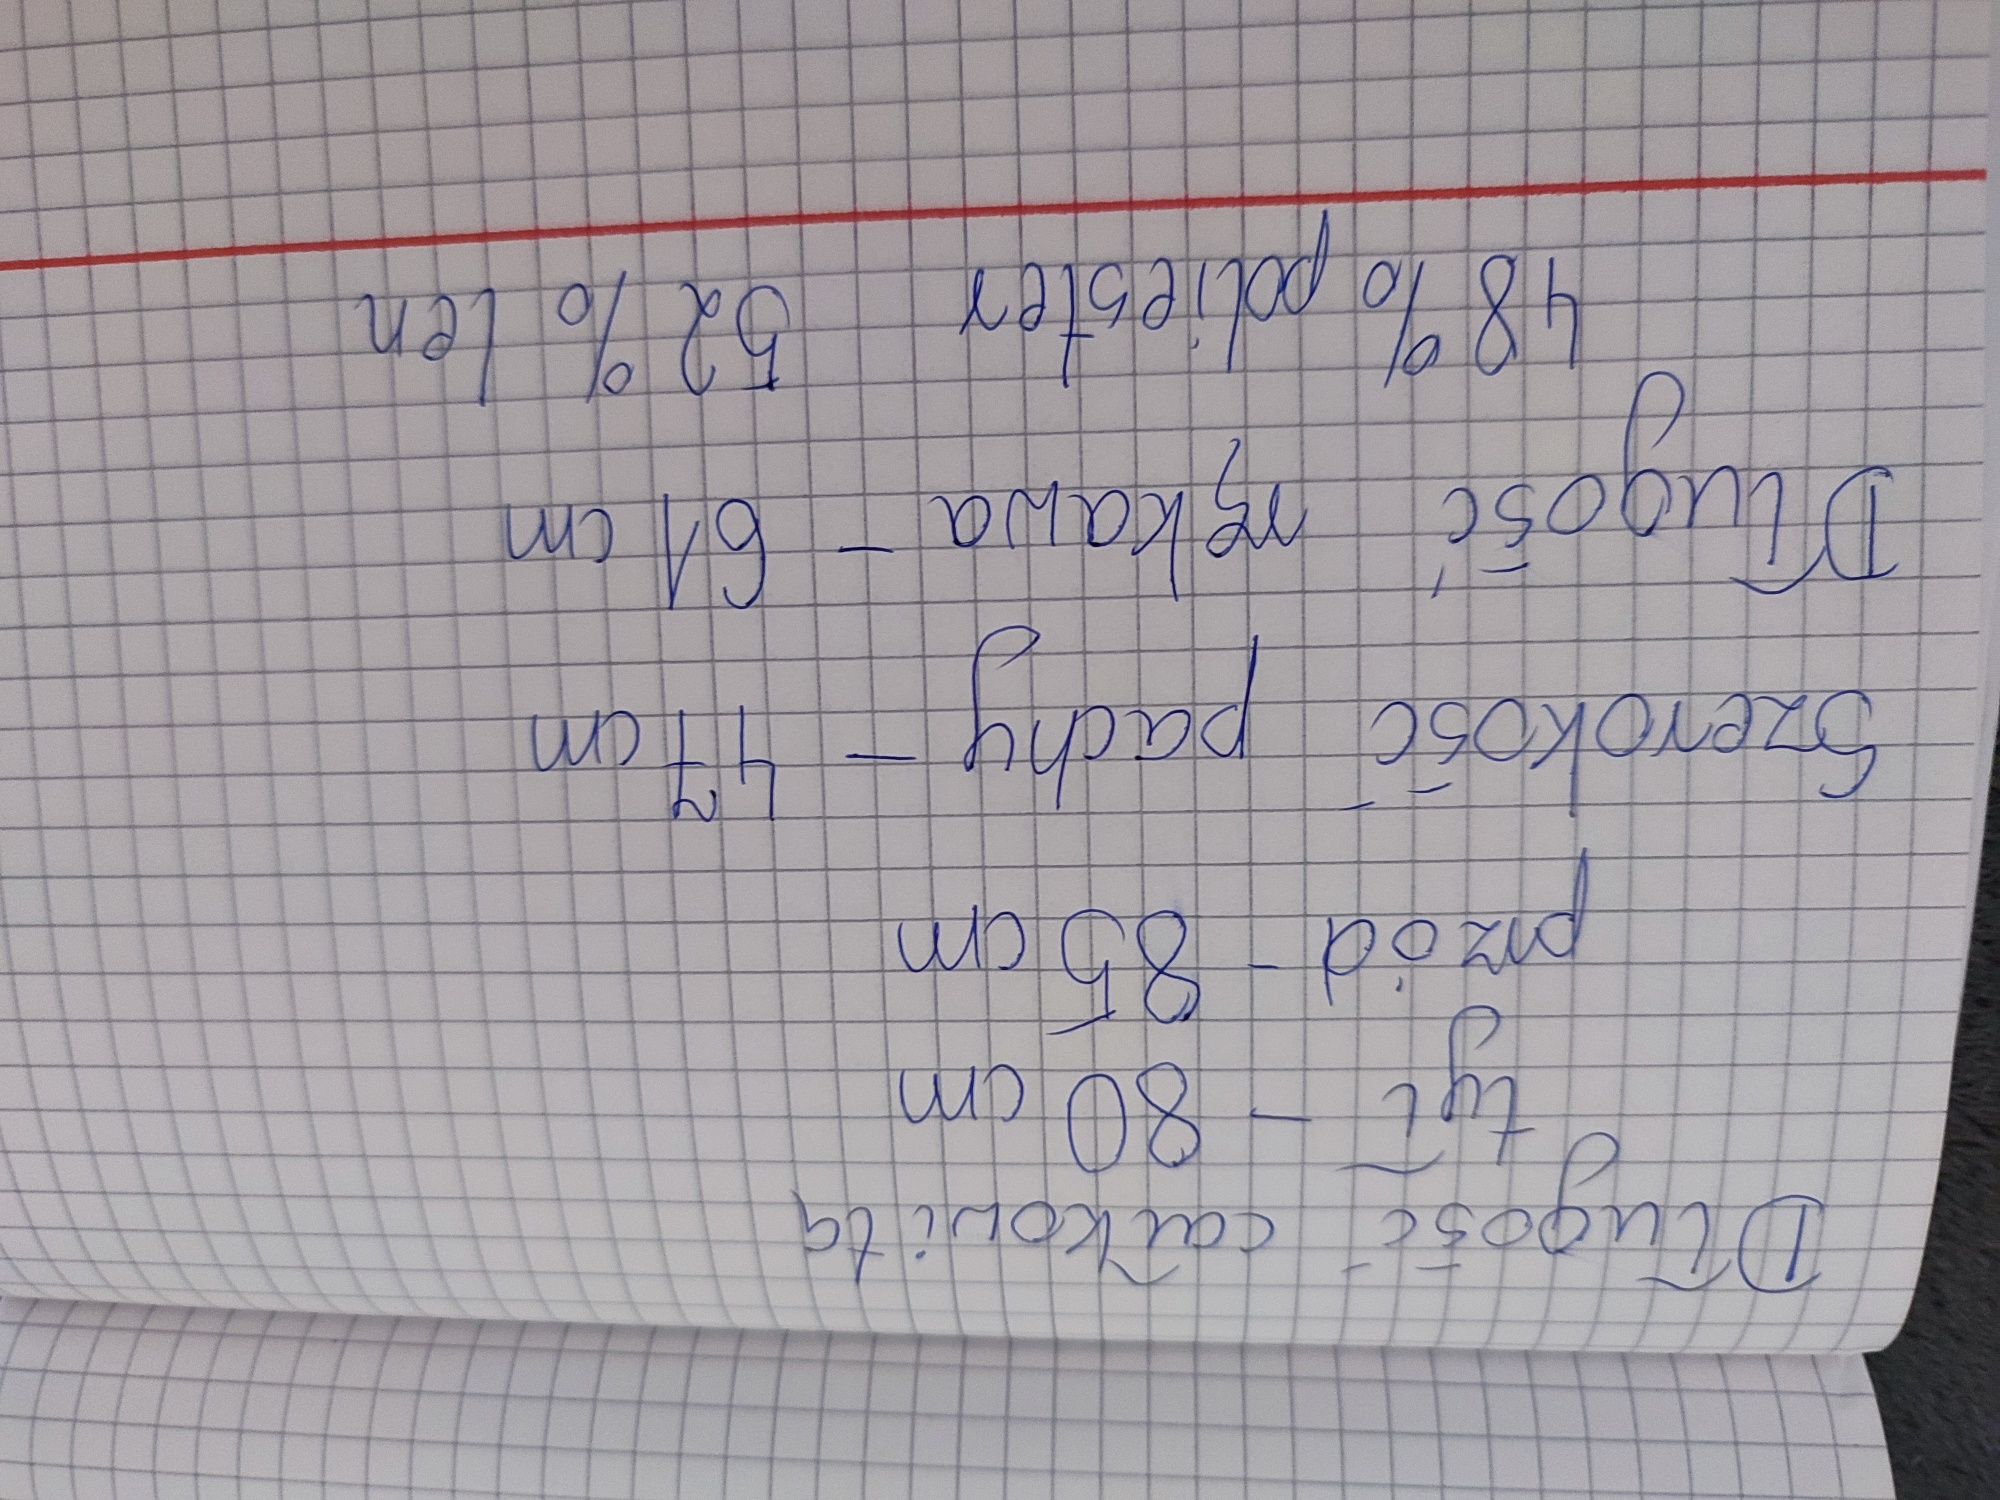 Długość całkowita
tył - 80 cm
przód - 85 cm
Szerokość pachy - 47 cm
Długość rękawa - 61 cm
48% poliester 52% len